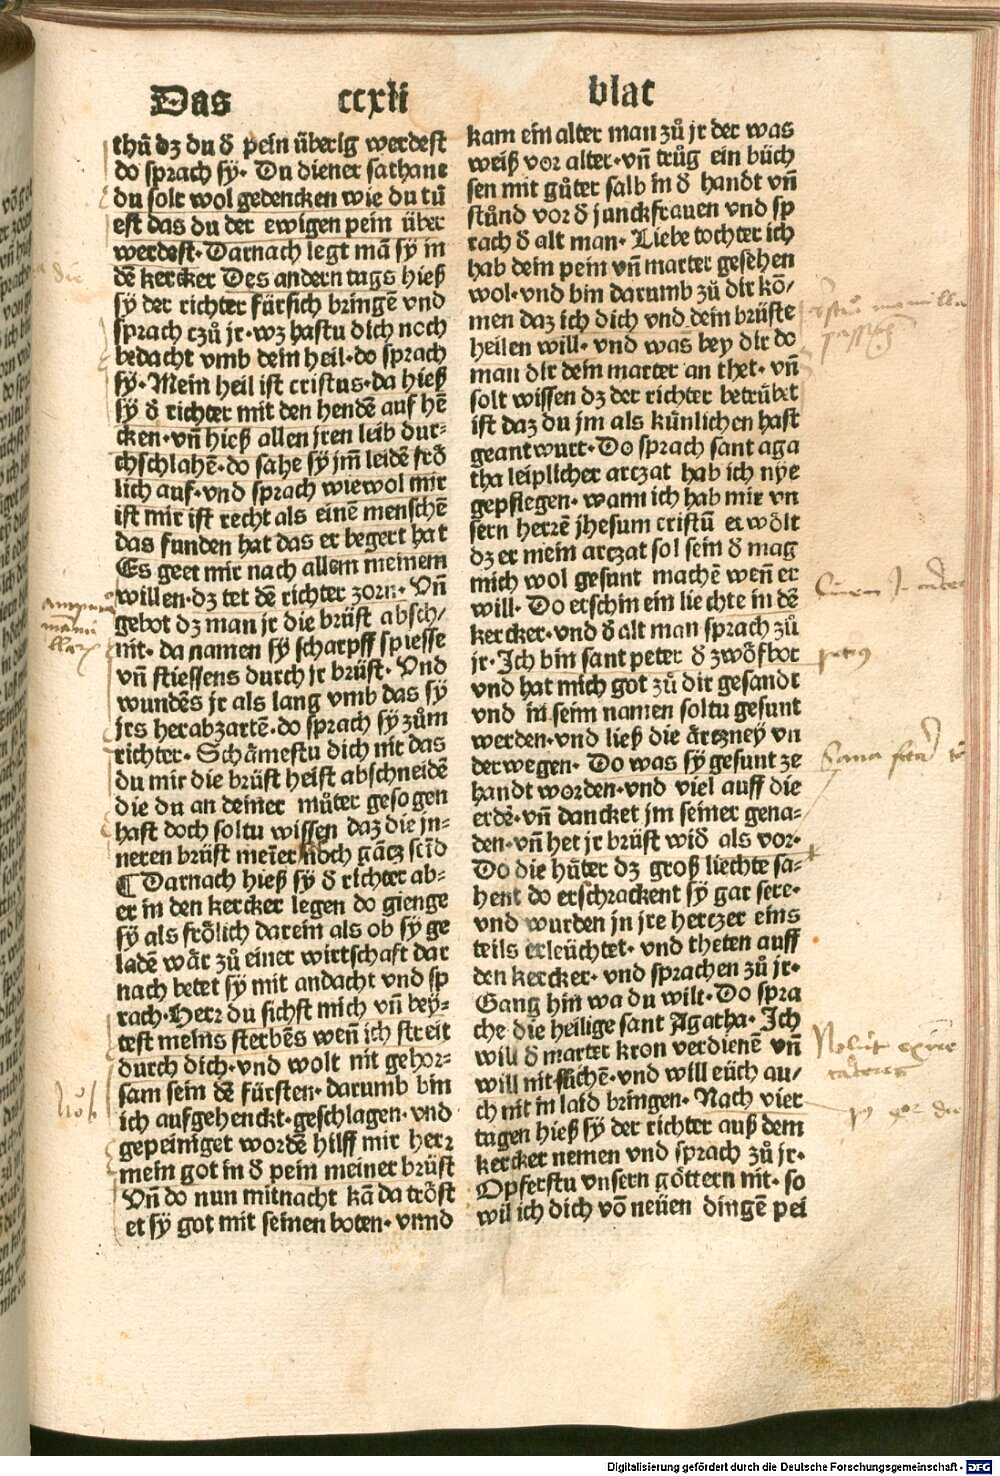 Das ccxlii blat
thů dz du ď pein überig werdest
do sprach sÿ· Du diener sathane
du solt wol gedencken wie du tů
est das du der ewigen pein über
werdest· Darnach legt mā sÿ in
dē kercker Des andern tags hieß
sÿ der richter fürsich bringē vnd
sprach czů jr· wz hastu dich noch
bedacht vmb dein heil· do sprach
sÿ· Mein heil ist cristus· da hieß
sÿ ď richter mit den hendē auf hē
cken· vn̄ hieß allen jren leib dur⸗
chschlahē· do sahe sÿ jm̄ leidē frö
lich auf· vnd sprach wiewol mir
ist mir ist recht als einē menschē
das funden hat das er begert hat
Es geet mir nach allem meinem
willen· dz tet dē richter zorn· Vn̄
gebot dz man jr die brüst absch/
nit· da namen sÿ scharpff spiesse
vn̄ stiessens durch jr brüst· Vnd
wundēs jr als lang vmb das sÿ
jrs herabzartē· do sprach sÿ zům
richter· Schämestu dich nit das
du mir die brüst heist abschneidē
die du an deiner můter gesogen
hast doch soltu wissen daz die jn⸗
neren brüst meīer noch gācz seīd
¶ Darnach hieß sÿ ď richter ab⸗
er in den kercker legen do gienge
sÿ als frölich darein als ob sÿ ge
ladē wär zů einer wirtschaft dar
nach betet sÿ mit andacht vnd sp
rach· Herr du sichst mich vn̄ beÿ⸗
test meins sterbēs wen̄ ich streit
durch dich· vnd wolt nit gehor⸗
sam sein dē fürsten· darumb bin
ich aufgehenckt· geschlagen· vnd
gepeiniget wordē hilff mir herr
mein got in ď pein meiner brüst
Vn̄ do nun mitnacht kā da tröst
et sÿ got mit seinen boten· vnnd
kam ein alter man zů jr der was
weiß vor alter· vn̄ trůg ein büch
sen mit gůter salb in ď handt vn̄
stůnd vor ď junckfrauen vnd sp
rach ď alt man· Liebe tochter ich
hab dein pein vn̄ marter gesehen
wol· vnd bin darumb zů dir kō/
men daz ich dich vnd dein brüste
heilen will· vnd was bey dir do
man dir dein marter an thet· vn̄
solt wissen dz der richter betrůbet
ist daz du jm als künlichen hast
geantwurt· Do sprach sant aga
tha leiplicher arczat hab ich nye
gepflegen· wann ich hab mir vn
sern herrē jhesum cristū erwölt
dz er mein arczat sol sein ď mag
mich wol gesunt machē wen̄ er
will· Do erschin ein liechte in dē
kercker· vnd ď alt man sprach zů
jr· Ich bin sant peter ď zwölfbot
vnd hat mich got zů dir gesandt
vnd in seim namen soltu gesunt
werden· vnd ließ die ärczneÿ vn
derwegen· Do was sÿ gesunt ze
handt worden· vnd viel auff die
erdē· vn̄ dancket jm seiner gena⸗
den· vn̄ het jr brüst wiď als vor·
Do die hůter dz groß liechte sa⸗
hent do erschrackent sÿ gar sere·
vnd wurden in jre herczer eins
teils erleüchtet· vnd theten auff
den kercker· vnd sprachen zů jr·
Gang hin wa du wilt· Do spra
che die heilige sant Agatha· Ich
will ď marter kron verdienē vn̄
will nit flüchē· vnd will eüch au/
ch nit in laid bringen· Nach vier
tagen hieß sÿ der richter auß dem
kercker nemen vnd sprach zů jr·
Opferstu vnsern göttern nit· so
wil ich dich vō neüen dingē pei
Digitalisierung gefördert durch die Deutsche Forschungsgemeinschaft - DFG